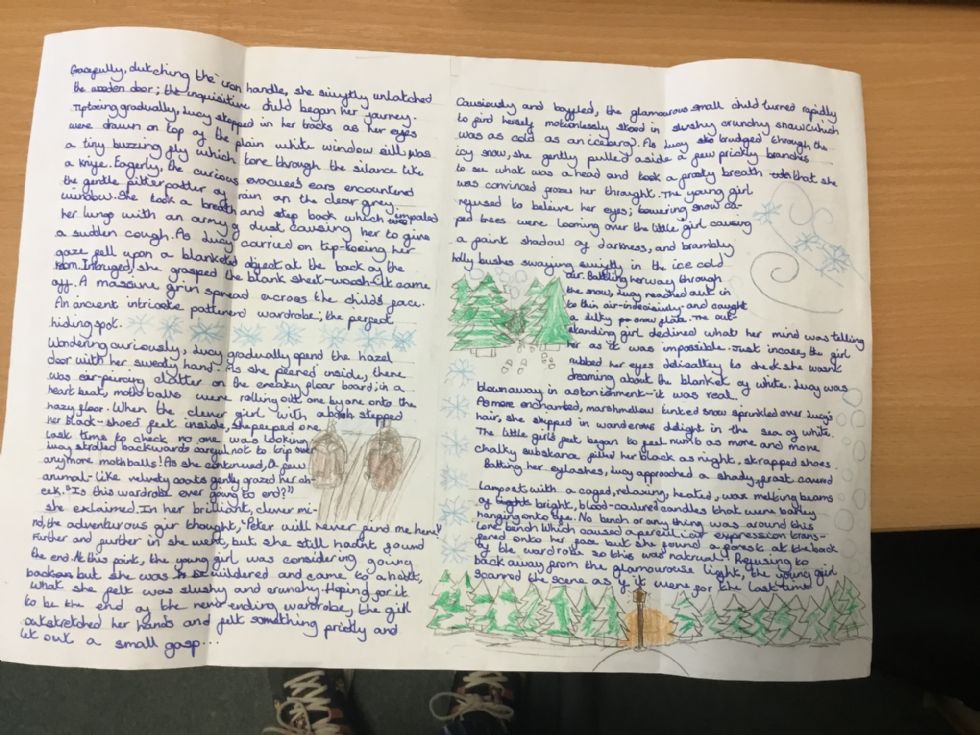 Gracefully, clutching the iron handle, she swiftly unlatched
the wooden door; the inquisitive child began her journey.
Tiptoeing gradually, Lucy stopped in her tracks as her eyes
were drawn on top of the plain white window sill, was
a tiny buzzing fly which tore through the silance like
a knife. Eagerly, the curious evacuee's ears encountered
the gentle pitter patter of rain on the clear grey
window. She took a breath and step back which impaled
her lungs with an army of dust causing her to give
a sudden cough. As Lucy carried on tip-toeing her
gaze fell upon a blanketed object at the back of the
room. Intrigued, she grasped the blank sheet-woosh-it came
off. A massive grin spread across the child's face.
An ancient intricate patternd wardrobe; the perfect
hiding spot.
Wondering curiously, Lucy gradually opend the hazel
door with her sweaty hand. As she peered inside, there
was ear-piercing clatter on the creaky floor board; in a
heart beat, moth balls were rolling out one by one onto the
hazy floor. When the clever girl with a stepped
her black-shoed feet inside, she peeped one
last time to check no one was looking.
Lucy strolled backwards careful not to trip over
anymore mothballs! As she continued, a few
animal-like velvety coats gently grazed her ch-
eek. "Is this wardrobe ever going to end?"
she exclaimed. In her brilliant, clever mi-
nd, the adventurous girl thought, "Peter will never find me here!"
Further and further in she went, but she still hadnt found
the end. At this point, the young girl was considering going
back but she was bewildered and came to a halt,
what she felt was slushy and crunchy. Hoping for it
to be the end of the never ending wardrobe, the girl
outstretched her hands and felt something prickly and
let out a small gasp...
Causiously and baffled, the glamourous small child turned rapidly
to find herself motionlessly stood in slushy crunchy snow (which
was as cold as an iceberg). As Lucy trudged through the
icy snow, she gently pulled aside a few prickly branches
to see what was a head and took a frosty breath that she
was convinced froze her throught. The young girl
refused to beleive her eyes; towering snow ca-
ped trees were looming over the little girl causing
a faint shadow of darkness, and brambly
holly bushes swaying swiftly in the ice cold
air. Battling her way through
the snow, Lucy reached out in
to thin air-indecisively and caught
a silky snow flake. The out
standing girl declined what her mind was telling
her as it was impossible. Just incase, the girl
rubbed her eyes delicatley to check she wasnt
dreaming about the blanket of white. Lucy was
blown away in astonishment-it was real.
As more enchanted, marshmellow tinked snow sprinkled over Lucy's
hair, she skipped in wanderous delight in the sea of white.
The little girl's feet began to feel numb as more and more
chalky substance filled her black as night, strapped shoes.
Batting her eyelashes, Lucy approached a shady, frost covered
Lampost with a caged, relaxing, heated, wax melting beams
of bright, blood-coloured candles that were barley
hanging onto life. No bench or any thing was around this
lone bench which caused a perculiar expression trans-
fered onto her face but she found a forest at the back
of the wardrobe so this was natrually. Refusing to
back away from the glamourous light, the young girl
scanned the scene as if it were for the last time